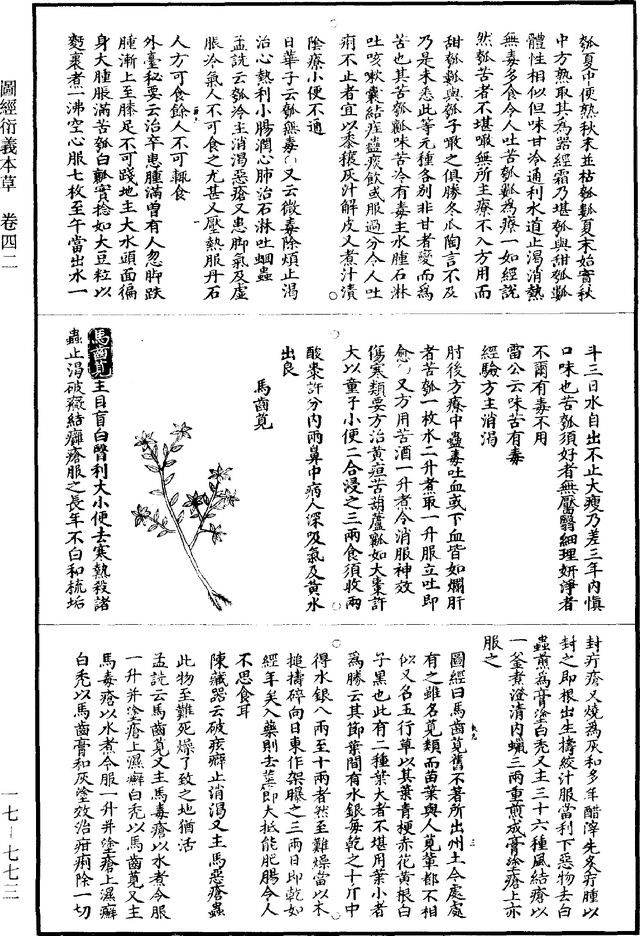 圖經衍義本草 卷四二
瓠夏中便熟秋末並枯瓠瓢夏末始實秋
中方熟取其為器經霜乃堪瓠與甜瓠瓢
體性相似但味甘冷通利水道止渴消熱
無毒多食令人吐苦瓠瓢為療一如經說
然瓠苦者不堪噉無所主療不入方用而
甜瓠瓢與瓠子噉之俱勝冬瓜陶言不及
乃是未悉此等元種各別非甘者變而為
苦也其苦瓠瓤味苦冷有毒主水腫石淋
吐咳嗽囊結疰蠱痰飲或服過分令人吐
痢不止者宜以黍穰灰汁解之又煮汁漬
陰療小便不通
日華子云瓠無毒又云微毒除煩止渴
治心熱利小腸潤心肺治石淋吐蛔蟲
孟詵云瓠冷主消渴惡瘡又患腳氣及虛
脹冷氣人不可食之尤甚又壓熱服丹石
人方可食餘人不可輒食
外臺秘要云治卒患腫滿曾有人忽腳趺
腫漸上至膝足不可踐地主大水頭面徧
身大腫脹滿苦瓠白瓤實捻如大豆粒以
麪裹煮一沸空心服七枚至午當出水一
斗三日水自出不止大瘦乃差三年內慎
口味也苦瓠須好者無靨翳細理妍淨者
不爾有毒不用
雷公云味苦有毒
經驗方主消渴
肘後方療中蠱毒吐血或下血皆如爛肝
者苦瓠一枚水二升煮取一升服立吐即
愈又方用苦酒一升煮令消服神效
傷寒類要方治黃疸苦葫蘆瓤如大棗許
大以童子小便二合浸之三兩食須收兩
酸棗許分內兩鼻中病人深吸氣及黃水
出良
馬齒莧
馬齒莧主目盲白瞖利大小便去寒熱殺諸
蟲止渴破癥結癰瘡服之長年不白和梳垢
封疔瘡又燒為灰和多年醋滓先灸疔腫以
封之即根出生擣絞汁服當利下惡物去白
蟲煎為膏塗白禿又主三十六種風結瘡以
一釜煮澄清內蠟三兩重煎成膏塗瘡上亦
服之
圖經曰馬齒莧舊不著所出州土今處處
有之雖名莧類而苗葉與人莧輩都不相
似又名五行草以其葉青梗赤花黃根白
子黑也此有二種葉大者不堪用葉小者
為勝云其節葉間有水銀每乾之十斤中
得水銀八兩至十兩者然至難燥當以木
搥擣碎向日東作架曝之三兩日即乾如
經年矣入藥則去莖節大抵能肥腸令人
不思食耳
陳藏器云破痃癖止消渴又主馬惡瘡蟲
此物至難死燥了致之地猶活
孟詵云馬齒莧又主馬毒瘡以水煮令服
一升并塗瘡上濕癬白禿以馬齒莧又主
馬毒瘡以水煮令服一升并塗瘡上濕癬
白禿以馬齒膏和灰塗效治疳痢除一切
一七—七七三